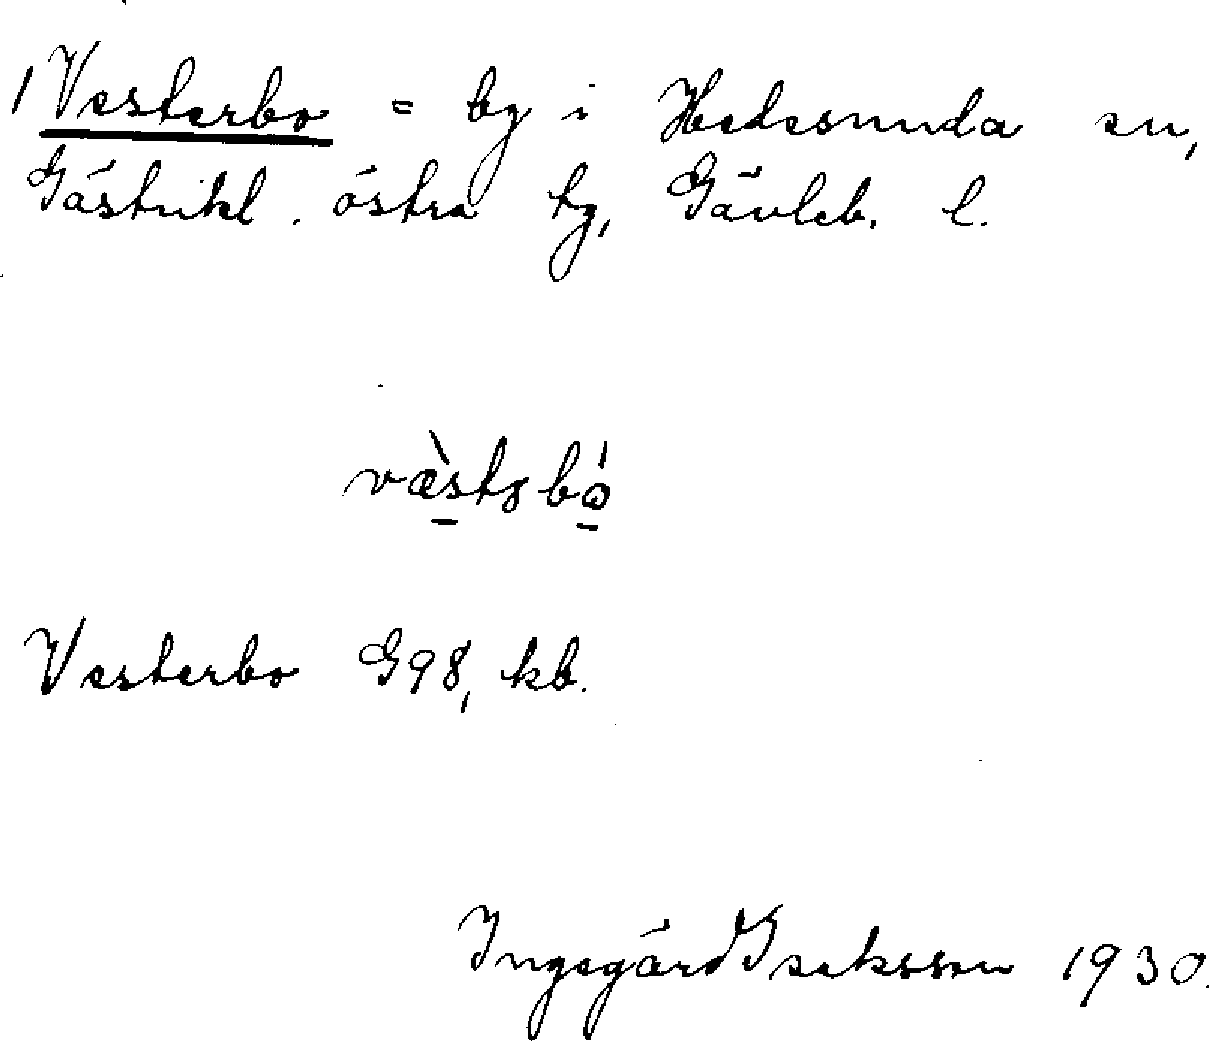 1 Vesterbo = by i Hedesunda sn,
Gästrikl. östra tg, Gävleb. l.
væ̀stəbó
Vesterbo G98, kb.
Ingegärd Iseksson 1930.